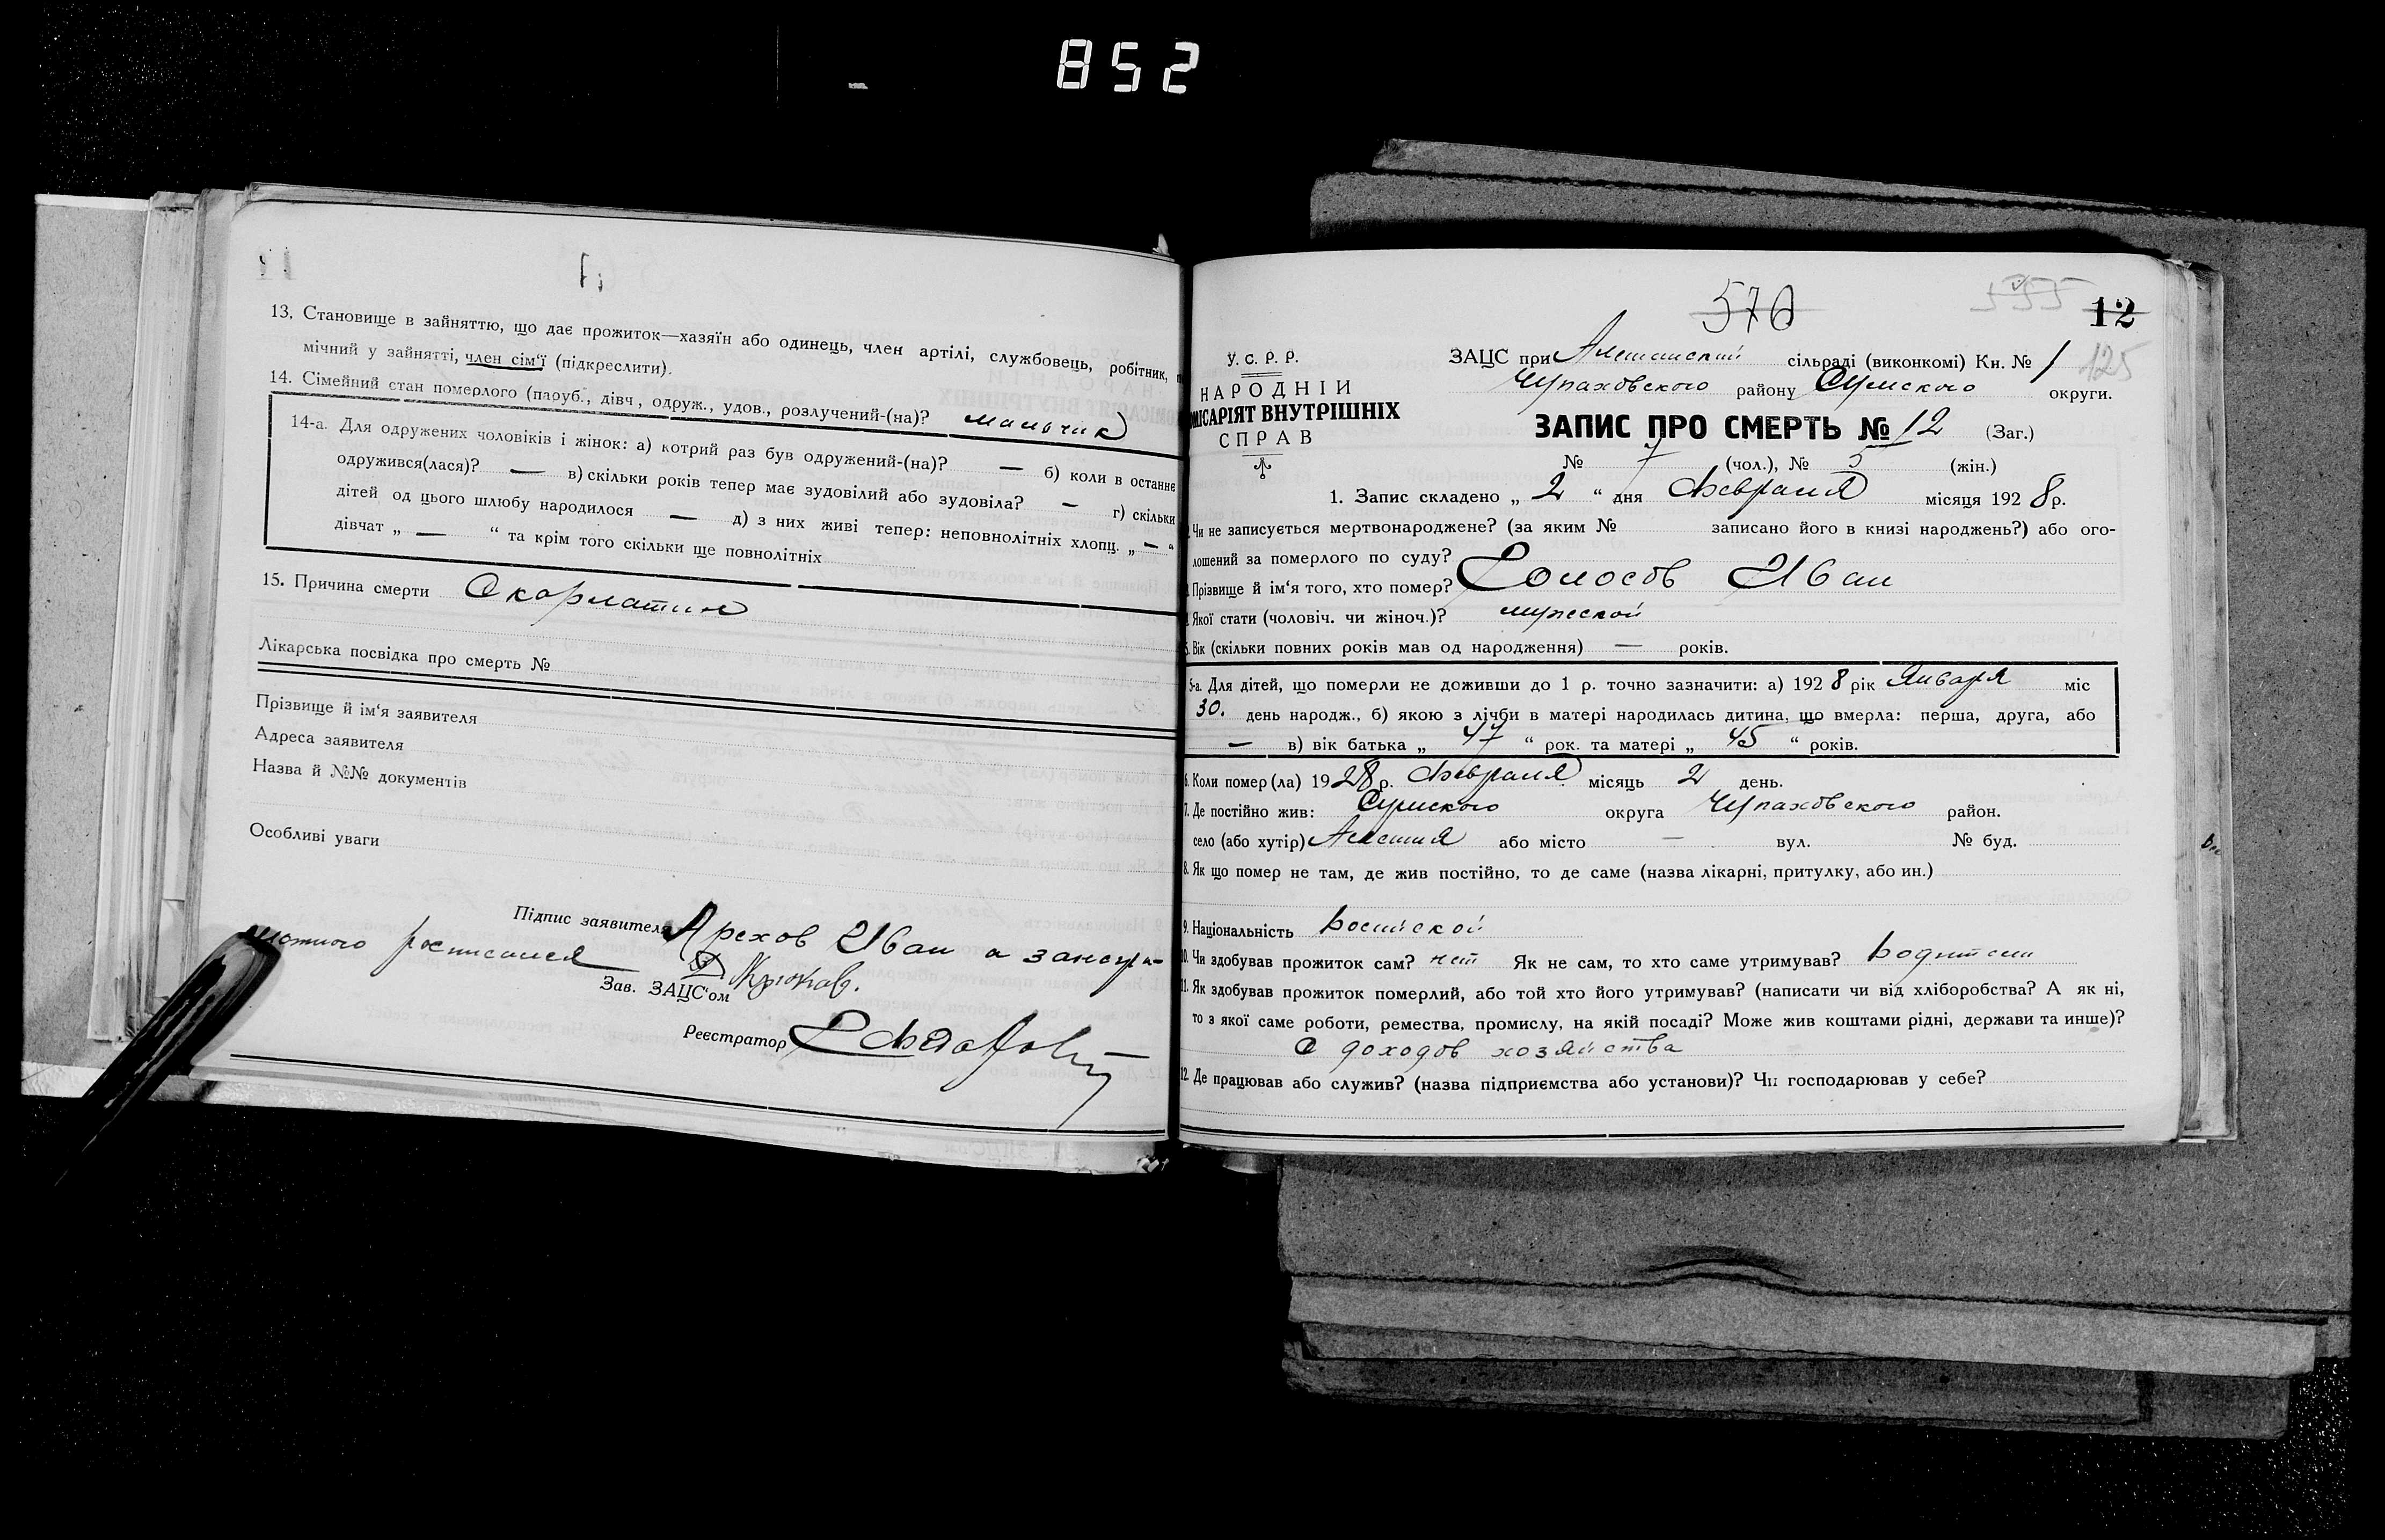 852
13. Становище в зайняттю, що дає прожиток—хазяїн або одинець, член артілі, службовець, робітник,
мічний у зайнятті, член сім'ї (підкреслити).
14. Сімейний стан померлого (паруб., дівч, одруж., удов., розлучений-(на)? мальчик
14-а. Для одружених чоловіків і жінок: а) котрий раз був одружений-(на)? — б) коли в останнє
одружився(лася)? — в) скільки років тепер має зудовілий або зудовіла? — г) скільки
дітей од цього шлюбу народилося — д) з них живі тепер: неповнолітніх хлопц. „ — “
дівчат „ — “ та крім того скільки ще повнолітніх
15. Причина смерти Скарлатин
Лікарська посвідка про смерть №
Прізвище й ім'я заявителя
Адреса заявителя
Назва й №№ документів
Особливі уваги
Підпис заявителя Арехов Иван а за негра-
мотного росписался
Зав. ЗАЦС'ом Крюков.
Реєстратор
570
535
12
125
У. С. Р. Р.
НАРОДНІЙ
МІСАРІЯТ ВНУТРІШНІХ
СПРАВ
ЗАЦС при сільраді (виконкомі) Кн. № 1
Чупаховского району Сумского округи.
ЗАПИС ПРО СМЕРТЬ № 12 (Заг.)
№ 7 (чол.), № 5 (жін.)
1. Запис складено „ 2 “ дня Февраля місяця 1928 р.
Чи не записується мертвонароджене? (за яким № записано його в книзі народжень?) або ого-
лошений за померлого по суду?
Прізвище й ім'я того, хто помер? Голосов Иван
Якої стати (чоловіч. чи жіноч.)? мужской
5. Вік (скільки повних років мав од народження) — років.
5-а. Для дітей, що померли не доживши до 1 р. точно зазначити: а) 1928 рік Января міс
30. день народж., б) якою з лічби в матері народилась дитина, що вмерла: перша, друга, або
— в) вік батька „ 47 “ рок. та матері „ 45 “ років.
6. Коли помер (ла) 1928 р. Февраля місяць 2 день.
7. Де постійно жив: Сумского округа Чупаховского район.
село (або хутір) або місто — вул. № буд.
8. Як що помер не там, де жив постійно, то де саме (назва лікарні, притулку, або ин.)
9. Національність
10. Чи здобував прожиток сам? нет Як не сам, то хто саме утримував? Родители
11. Як здобував прожиток померлий, або той хто його утримував? (написати чи від хліборобства? А як ні,
то з якої саме роботи, ремества, промислу, на якій посаді? Може жив коштами рідні, держави та инше)?
С доходов хозяйства
12. Де працював або служив? (назва підприємства або установи)? Чи господарював у себе?